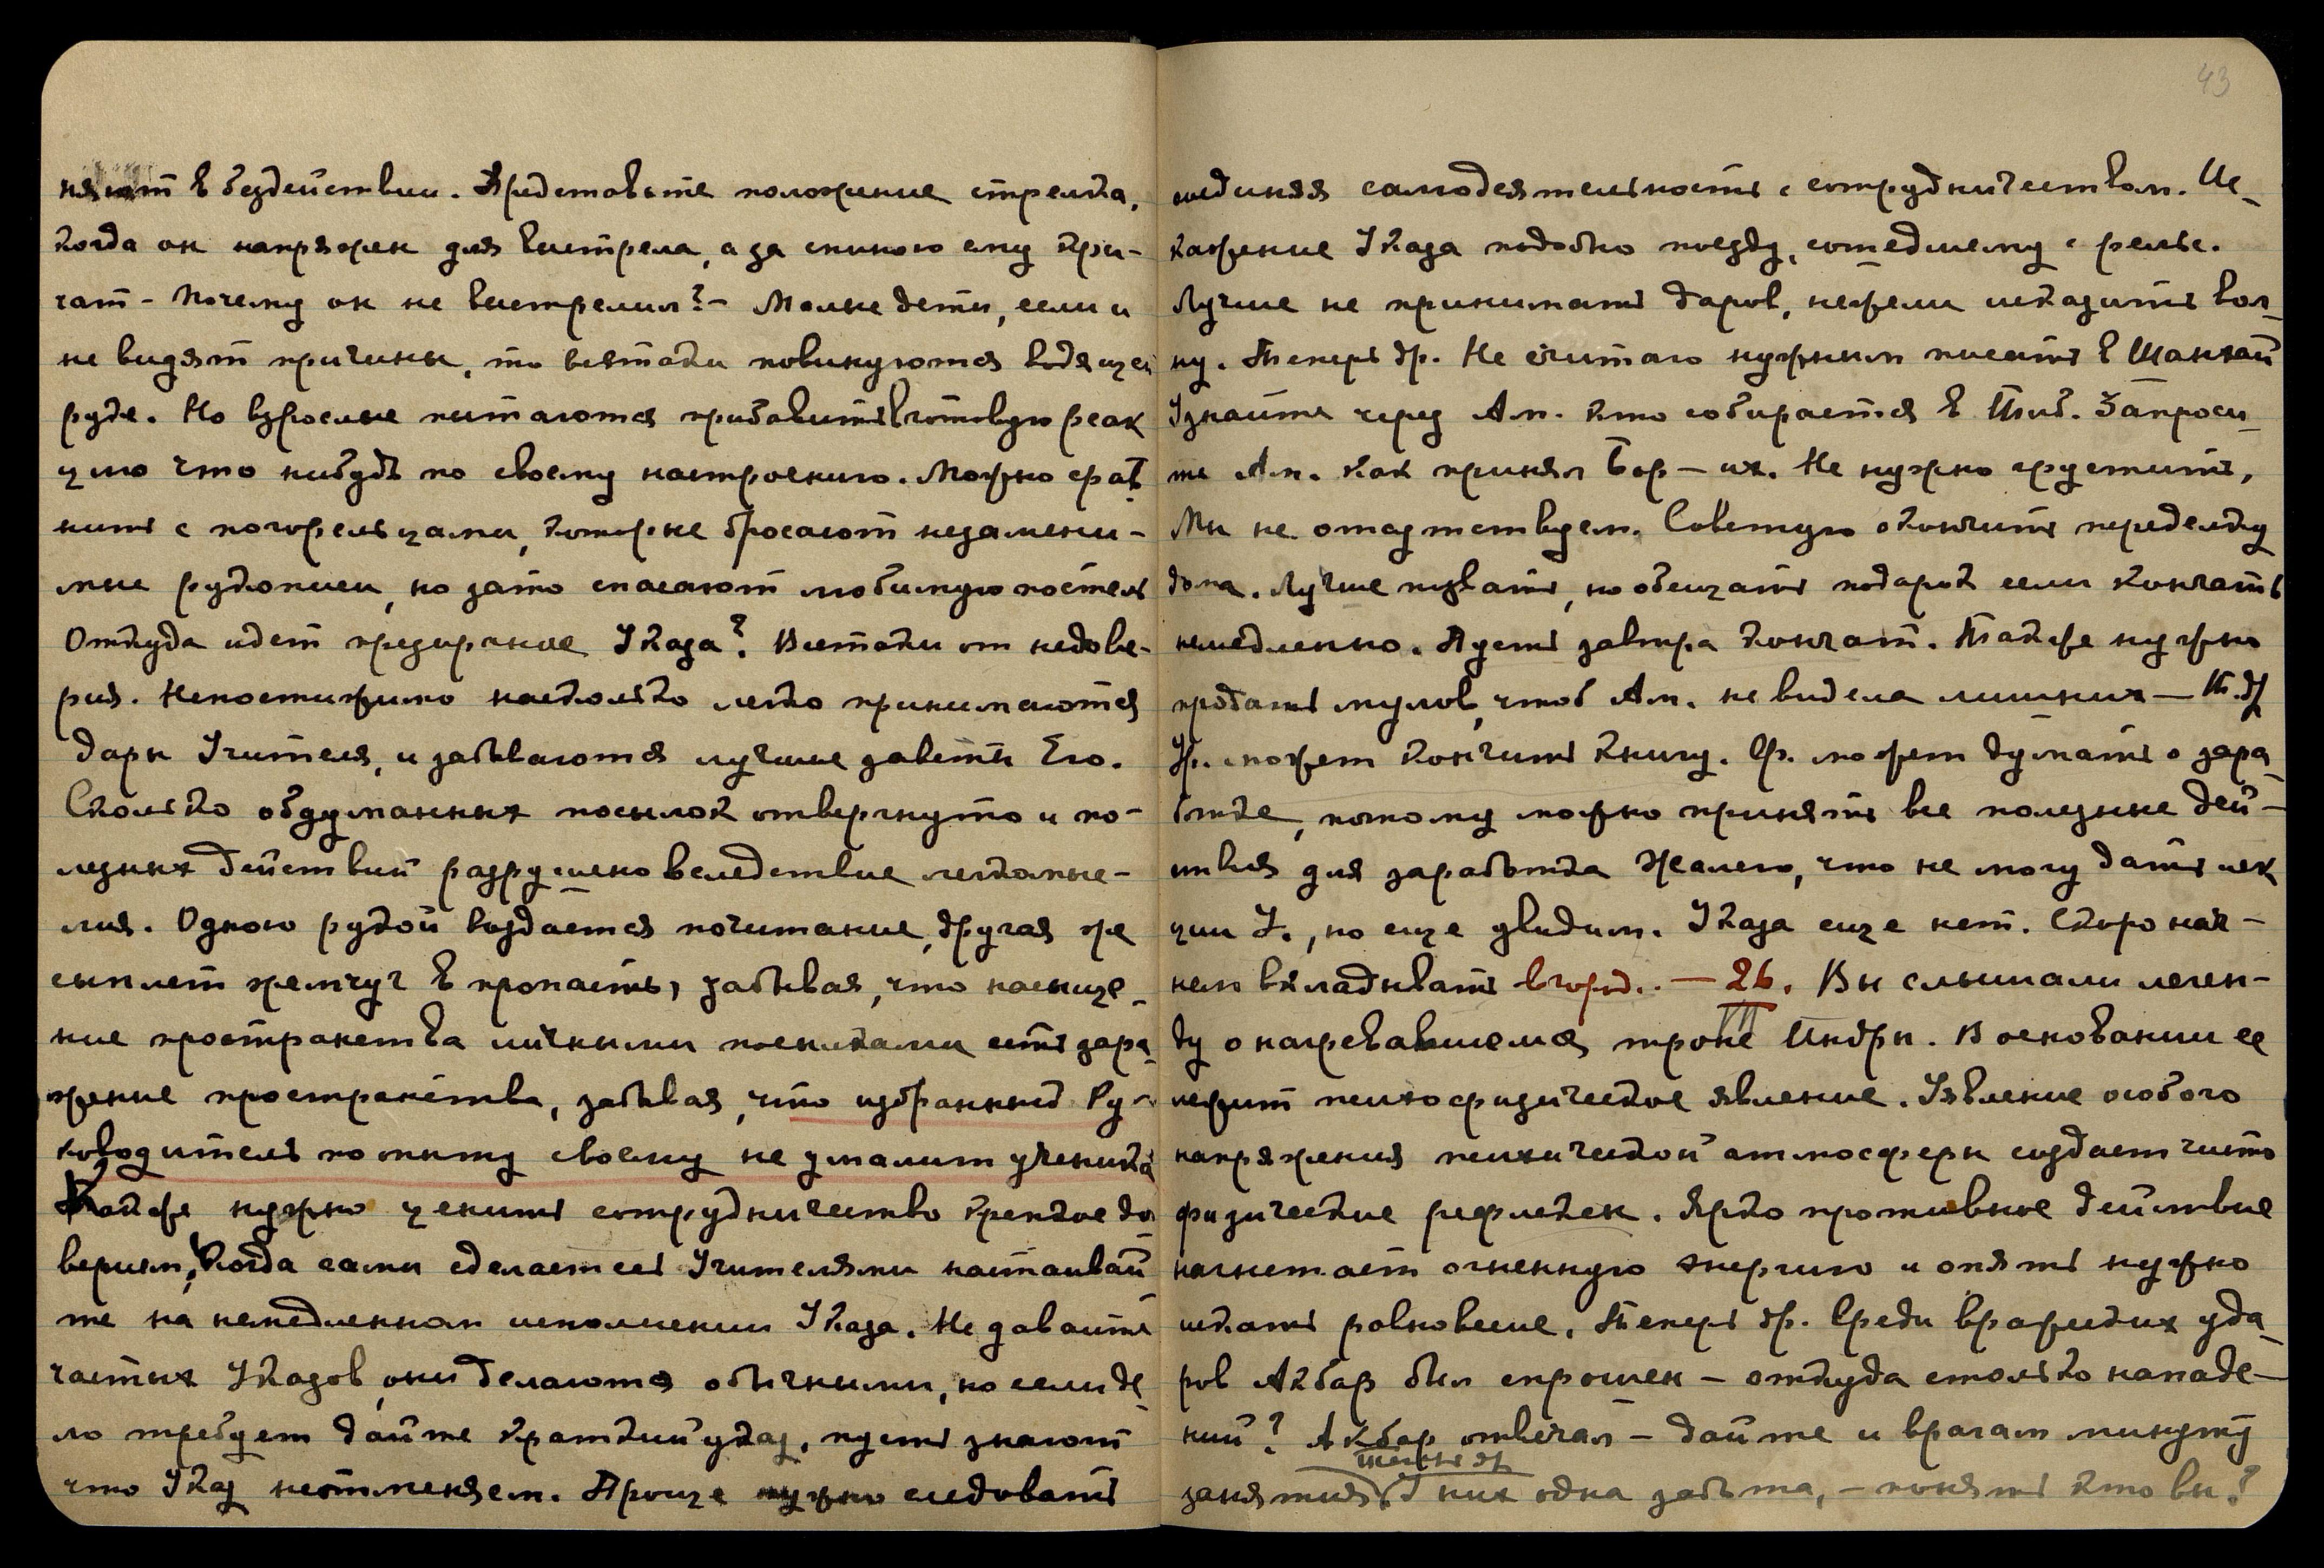 няют в бездействии. Представьте положение стрелка,
когда он напряжен для выстрела, а за спиною ему кри-
чат - Почему он не выстрелил? - Малые дети, если и
не видят причины, то всетаки повинуются водящей
руке. Но взрослые пытаются прибавить готовую реак
цию что нибудь по своему настроению. Можно срав
нить с погорельцами, которые бросают незамени-
мые рукописи, но зато спасают любимую постель
Откуда идет презирание Указа? Всетаки от недове-
рия. Непостижимо насколько легко принимаются
дары Учителя, и забываются лучшие заветы Его.
Сколько обдуманных посылок отвергнуто и по-
лезных действий разрушено вследствие легкомыс-
лия. Одною рукой воздается почитание, другая же
сыплет жемчуг в пропасть, забывая, что насыще-
ние пространства личными посылками есть зара-
жение пространства, забывая, что избранный Ру-
ководитель по опыту своему не умалит ученика
Также нужно ценить сотрудничество крепкое до
верием, Когда сами сделаетесь Учителями настаивай
те на немедленном исполнении Указа. Не давайте
частых Указов, они делаются обычными, но если де
ло требует дайте краткий указ, пусть знают
что Указ неотменяем. Проще нужно следовать
43
соединяя самодеятельность с сотрудничеством. Ис-
кажение Указа подобно поезду, сошедшему с рельс.
Лучше не принимать даров, нежели исказить вол-
ну. Теперь др. Не считаю нужным писать в Шанхай
Узнайте через Ам. кто собирается в Тиб. Запроси-
те Ам. как принял Бор — их. Не нужно грустить,
Мы не отсутствуем. Советую окончить переделку
дома. Лучше, но обещать подарок если кончать
немедленно. Пусть завтра кончат. Также нужно
продать мулов, чтоб Ам. не видела лишних — Т. др
Ур. может кончить книгу. Ф. может думать о зара-
ботке, потому можно принять все полезные дей-
ствия для заработка Жалею, что не могу дать лек
ции У., но еще увидим. Указа еще нет. Скоро нач-
нем вкладывать в город. — 26. Вы слышали леген-
ду о нагревавшемся троне Индры. В основании ее
лежит психофизическое явление. Явление особого
напряжения психической атмосферы создает чисто
физические рефлексы. Ярко противные действие
нагнетает огненную энергию и опять нужно
искать равновесие. Теперь др. Среди вражеских уда-
ров Акбар был спрошен - откуда столько нападе-
ний? Акбар отвечал - дайте и врагам минуту
теперь др
занятия У них одна забота, - понять кто вы?